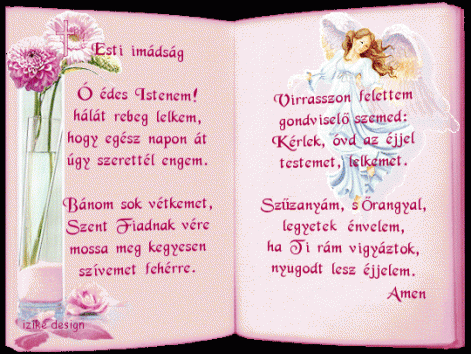 Esti imádság
Ó édes Istenem!
hálát rebeg lelkem,
hogy egész napon át
úgy szerettél engem.
Bánom sok vétkemet,
Szent Fiadnak vére
mossa meg kegyesen
szívemet fehérre.
izike design
Virrasszon felettem
gondviselő szemed:
Kérlek, óvd az éjjel
testemet, lelkemet.
Szűzanyám, s Őrangyal,
legyetek énvelem,
ha Ti rám vigyáztok,
nyugodt lesz éjjelem.
Amen